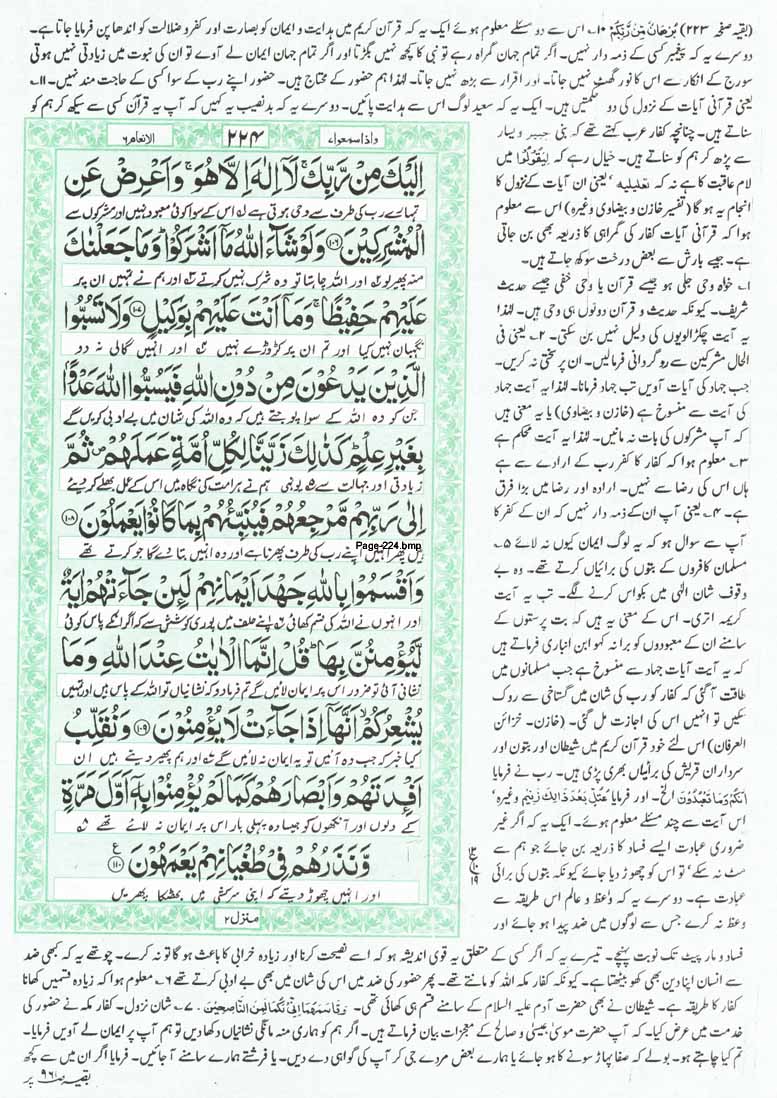 (بقیہ صفحہ ۲۲۳) بُرْهَانٌ مِّن رَّبِّكُمْ ۱۰۔ اس سے دو مسئلے معلوم ہوئے ایک یہ کہ قرآن کریم میں ہدایت و ایمان کو بصارت اور کفر و ضلالت کو اندھا پن فرمایا جاتا ہے۔
دوسرے یہ کہ پیغمبر کسی کے ذمہ دار نہیں۔ اگر تمام جہان گمراہ رہے تو نبی کا کچھ نہیں بگڑتا اور اگر تمام جہان ایمان لے آوے تو ان کی نبوت میں زیادتی نہیں ہوتی
سورج کے انکار سے اس کا نور گھٹ نہیں جاتا۔ اور اقرار سے بڑھ نہیں جاتا۔ لہٰذا ہم حضور کے محتاج ہیں۔ حضور اپنے رب کے سوا کسی کے حاجت مند نہیں۔ ۱۱۔
یعنی قرآنی آیات کے نزول کی دو حکمتیں ہیں۔ ایک یہ کہ سعید لوگ اس سے ہدایت پائیں۔ دوسرے یہ کہ بدنصیب یہ کہیں کہ آپ یہ قرآن کسی سے سیکھ کر ہم کو
سناتے ہیں۔ چنانچہ کفار عرب کہتے تھے کہ بنی جبیر و یسار
سے پڑھ کر ہم کو سناتے ہیں۔ خیال رہے کہ لِيَقُولُوا میں
لام عاقبت کا ہے نہ کہ تعلیلیہ یعنی ان آیات کے نزول کا
انجام یہ ہو گا (تفسیر خازن و بیضاوی وغیرہ) اس سے معلوم
ہوا کہ قرآنی آیات کفار کی گمراہی کا ذریعہ بھی بن جاتی
ہے۔ جیسے بارش سے بعض درخت سوکھ جاتے ہیں۔
۱۔ خواہ وحی جلی ہو جیسے قرآن یا وحی خفی جیسے حدیث
شریف۔ کیونکہ حدیث و قرآن دونوں ہی وحی ہیں۔ لہٰذا
یہ آیت چکڑالویوں کی دلیل نہیں بن سکتی۔ ۲۔ یعنی فی
الحال مشرکین سے روگردانی فرمالیں۔ ان پر سختی نہ کریں۔
جب جہاد کی آیات آویں تب جہاد فرمانا۔ لہٰذا یہ آیت جہاد
کی آیت سے منسوخ ہے (خازن و بیضاوی) یا یہ معنی ہیں
کہ آپ مشرکوں کی بات نہ مانیں۔ لہٰذا یہ آیت محکم ہے
۳۔ معلوم ہوا کہ کفار کا کفر رب کے ارادے سے ہے
ہاں اس کی رضا سے نہیں۔ ارادہ اور رضا میں بڑا فرق
ہے۔ ۴۔ یعنی آپ ان کے ذمہ دار نہیں کہ ان کے کفر کا
آپ سے سوال ہو کہ یہ لوگ ایمان کیوں نہ لائے ۵۔
مسلمان کافروں کے بتوں کی برائیاں کرتے تھے۔ وہ بے
وقوف شان الٰہی میں بکواس کرنے لگے۔ تب یہ آیت
کریمہ اتری۔ اس کے معنی یہ ہیں کہ بت پرستوں کے
سامنے ان کے معبودوں کو برا نہ کہو ابن انباری فرماتے ہیں
کہ یہ آیت آیات جہاد سے منسوخ ہے جب مسلمانوں میں
طاقت آگئی کہ کفار کو رب کی شان میں گستاخی سے روک
سکیں تو انہیں اس کی اجازت مل گئی۔ (خازن۔ خزائن
العرفان) اس لئے خود قرآن کریم میں شیطان اور بتوں اور
سرداران قریش کی برائیاں بھری پڑی ہیں۔ رب نے فرمایا
اِنَّكُمْ وَمَا تَعْبُدُوْنَ الخ۔ اور فرمایا عُتُلٍّ بَعْدَ ذَالِكَ زَنِيْمٍ وغیرہ
اس آیت سے چند مسئلے معلوم ہوئے۔ ایک یہ کہ اگر غیر
ضروری عبادت ایسے فساد کا ذریعہ بن جائے جو ہم سے
مٹ نہ سکے تو اس کو چھوڑ دیا جائے کیونکہ بتوں کی برائی
عبادت ہے۔ دوسرے یہ کہ واعظ و عالم اس طریقہ سے
وعظ نہ کرے جس سے لوگوں میں ضد پیدا ہو جائے اور
واذا سمعوا ۷
۲۲۴
الانعام ۶
اِلَيْكَ مِنْ رَّبِّكَ ۚ لَآ اِلٰهَ اِلَّا هُوَ ۚ وَاَعْرِضْ عَنِ
تمہارے رب کی طرف سے وحی ہوتی ہے ۱؎ اس کے سوا کوئی معبود نہیں اور مشرکوں سے
الْمُشْرِكِيْنَ ۝۱۰۶ وَلَوْ شَآءَ اللّٰهُ مَآ اَشْرَكُوْا ؕ وَمَا جَعَلْنٰكَ
منہ پھیر لو ۲؎ اور اللہ چاہتا تو وہ شرک نہیں کرتے ۳؎ اور ہم نے تمہیں ان پر
عَلَيْهِمْ حَفِيْظًا ۚ وَمَآ اَنْتَ عَلَيْهِمْ بِوَكِيْلٍ ۝۱۰۷ وَلَا تَسُبُّوا
نگہبان نہیں کیا اور تم ان پر کڑوڑے نہیں ۴؎ اور انہیں گالی نہ دو
الَّذِيْنَ يَدْعُوْنَ مِنْ دُوْنِ اللّٰهِ فَيَسُبُّوا اللّٰهَ عَدْوًۢا
جن کو وہ اللہ کے سوا پوجتے ہیں کہ وہ اللہ کی شان میں بے ادبی کریں گے
بِغَيْرِ عِلْمٍ ؕ كَذٰلِكَ زَيَّنَّا لِكُلِّ اُمَّةٍ عَمَلَهُمْ ۪ ثُمَّ
زیادتی اور جہالت سے ۵؎ یونہی ہم نے ہر امت کی نگاہ میں اس کے عمل بھلے کر دیئے
اِلٰى رَبِّهِمْ مَّرْجِعُهُمْ فَيُنَبِّئُهُمْ بِمَا كَانُوْا يَعْمَلُوْنَ ۝۱۰۸
Page-224.bmp
ہیں پھر انہیں اپنے رب کی طرف پھرنا ہے اور وہ انہیں بتا دے گا جو کرتے تھے
وَاَقْسَمُوْا بِاللّٰهِ جَهْدَ اَيْمَانِهِمْ لَئِنْ جَآءَتْهُمْ اٰيَةٌ
اور انہوں نے اللہ کی قسم کھائی اپنے حلف میں پوری کوشش سے کہ اگر انکے پاس کوئی
لَّيُؤْمِنُنَّ بِهَا ؕ قُلْ اِنَّمَا الْاٰيٰتُ عِنْدَ اللّٰهِ وَمَا
نشانی آئی تو ضرور اس پر ایمان لائیں گے تم فرما دو کہ نشانیاں تو اللہ کے پاس ہیں اور تمہیں
يُشْعِرُكُمْ ۙ اَنَّهَآ اِذَا جَآءَتْ لَا يُؤْمِنُوْنَ ۝۱۰۹ وَنُقَلِّبُ
کیا خبر کہ جب وہ آئیں تو یہ ایمان نہ لائیں گے اور ہم پھیر دیتے ہیں ان
اَفْـِٕدَتَهُمْ وَاَبْصَارَهُمْ كَمَا لَمْ يُؤْمِنُوْا بِهٖٓ اَوَّلَ مَرَّةٍ
کے دلوں اور آنکھوں کو جیسا وہ پہلی بار اس پر ایمان نہ لائے تھے
وَّنَذَرُهُمْ فِيْ طُغْيَانِهِمْ يَعْمَهُوْنَ ۝۱۱۰
اور انہیں چھوڑ دیتے کہ اپنی سرکشی میں بھٹکا پھریں
منزل ۲
فساد و مار پیٹ تک نوبت پہنچے۔ تیسرے یہ کہ اگر کسی کے متعلق یہ قوی اندیشہ ہو کہ اسے نصیحت کرنا اور زیادہ خرابی کا باعث ہو گا تو نہ کرے۔ چوتھے یہ کہ کبھی ضد
سے انسان اپنا دین بھی کھو بیٹھتا ہے۔ کیونکہ کفار مکہ اللہ کو مانتے تھے۔ پھر حضور کی ضد میں اس کی شان میں بھی بے ادبی کرتے تھے ۶۔ معلوم ہوا کہ زیادہ قسمیں کھانا
کفار کا طریقہ ہے۔ شیطان نے بھی حضرت آدم علیہ السلام کے سامنے قسم ہی کھائی تھی۔ وَقَاسَمَهُمَا اِنِّيْ لَكُمَا لَمِنَ النَّاصِحِيْنَ۔ ۷۔ شان نزول۔ کفار مکہ نے حضور کی
خدمت میں عرض کیا۔ کہ آپ حضرت موسیٰ عیسیٰ و صالح کے معجزات بیان فرماتے ہیں۔ اگر ہم کو ہماری منہ مانگی نشانیاں دکھا دیں تو ہم آپ پر ایمان لے آویں فرمایا۔
تم کیا چاہتے ہو۔ بولے کہ صفا پہاڑ سونے کا ہو جائے یا ہمارے بعض مردے جی کر آپ کی گواہی دے دیں۔ یا فرشتے ہمارے سامنے آ جائیں۔ فرمایا اگر ان میں سے کچھ
بقیہ صفحہ ۹۶۱ پر